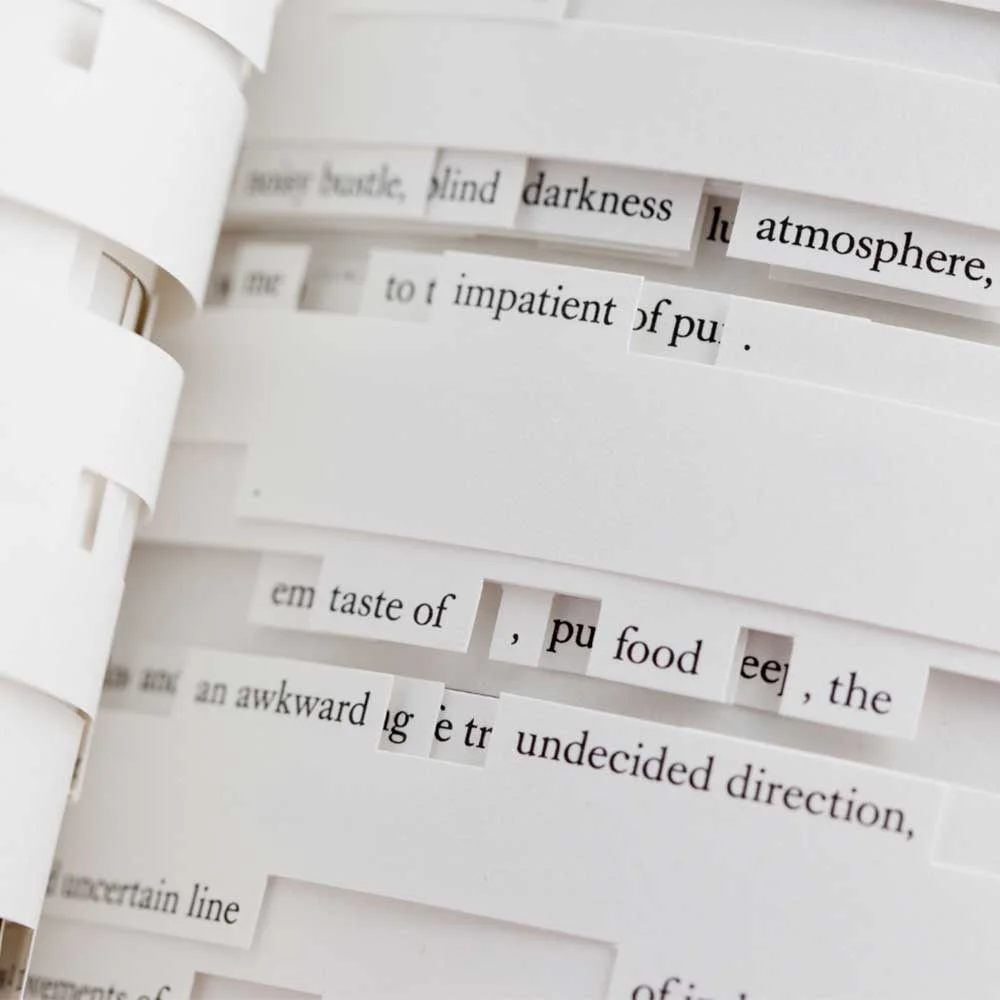 noisy bustle, blind darkness lu atmosphere,
me to t impatient of pu .
.
em taste of , pu food eep , the
and an awkward ng e tr undecided direction,
d uncertain line
vements of of